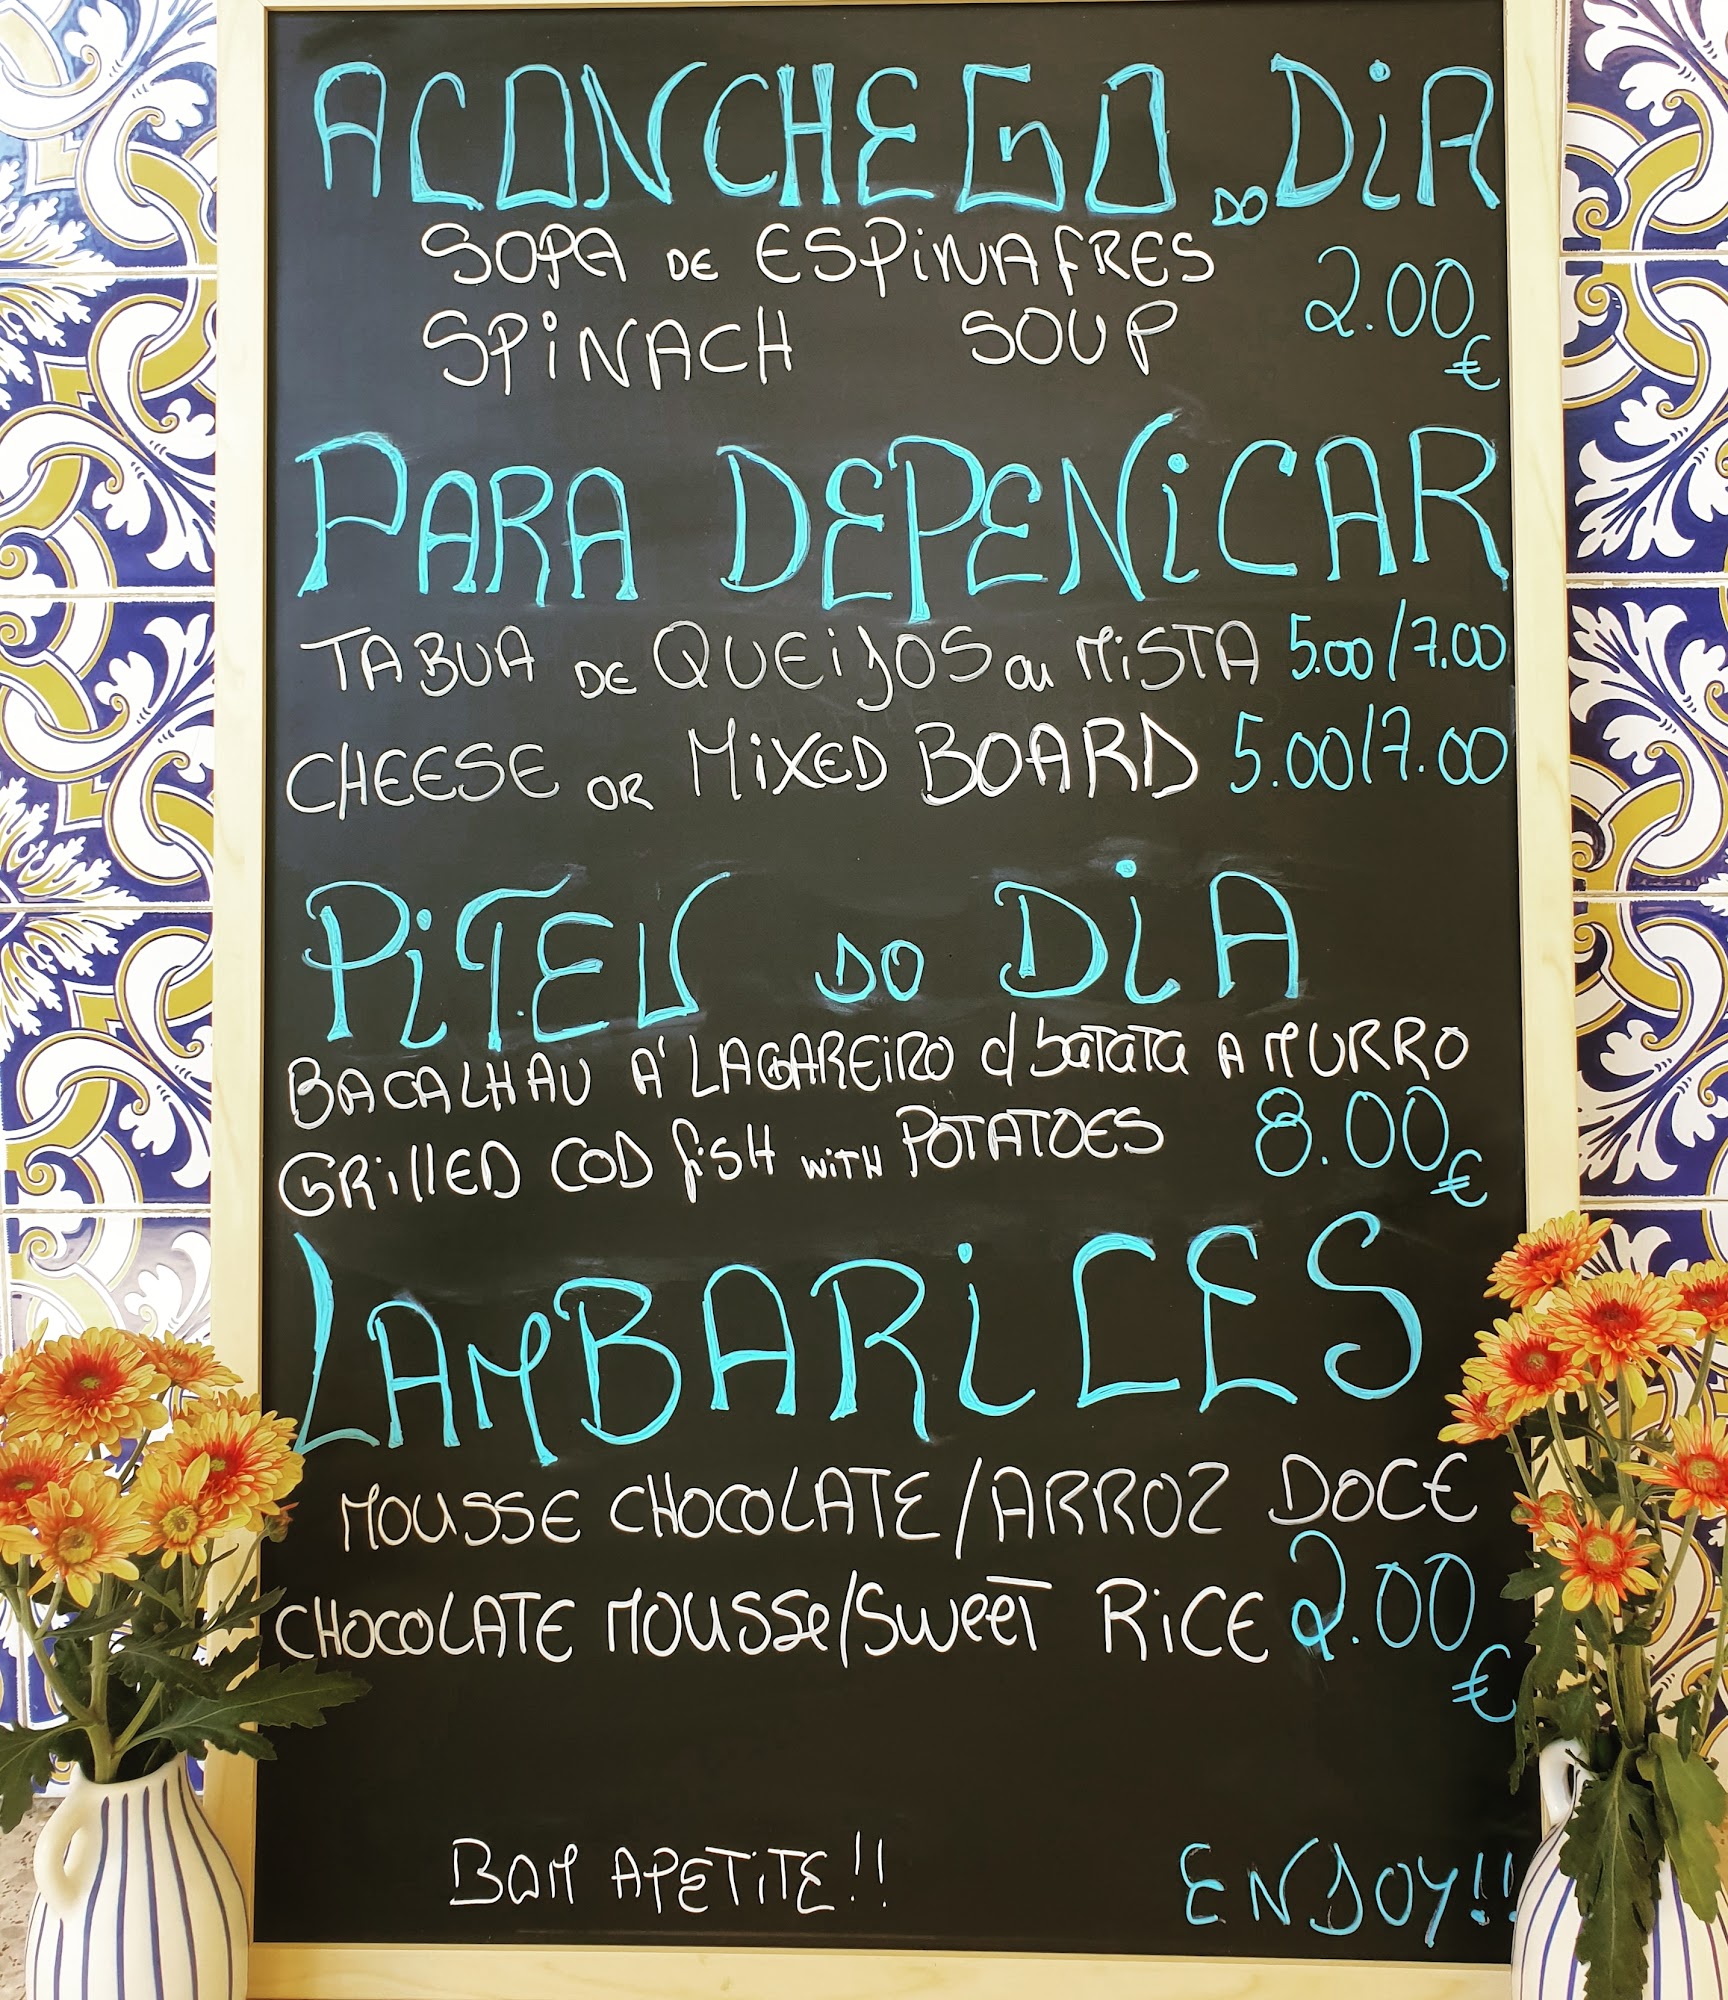 ACONCHEGO DO DiA
SOPA DE ESPiNAFRES
SPiNACH SOUP 2.00 €
PARA DEPENiCAR
TABUA DE QUEiJOS ou MiSTA 5.00/7.00
CHEESE OR MiXED BOARD 5.00/7.00
PiTEU DO DiA
BACALHAU A' LAGAREiRO c/ batata A MURRO
GRillED COD fisH wiTH POTATOES 8.00 €
LAMBARiCES
MOUSSE CHOCOLATE/ARROZ DOCE
CHOCOLATE MOUSSe/SweeT RiCE 2.00 €
BOM APETiTE!! ENJOY!!